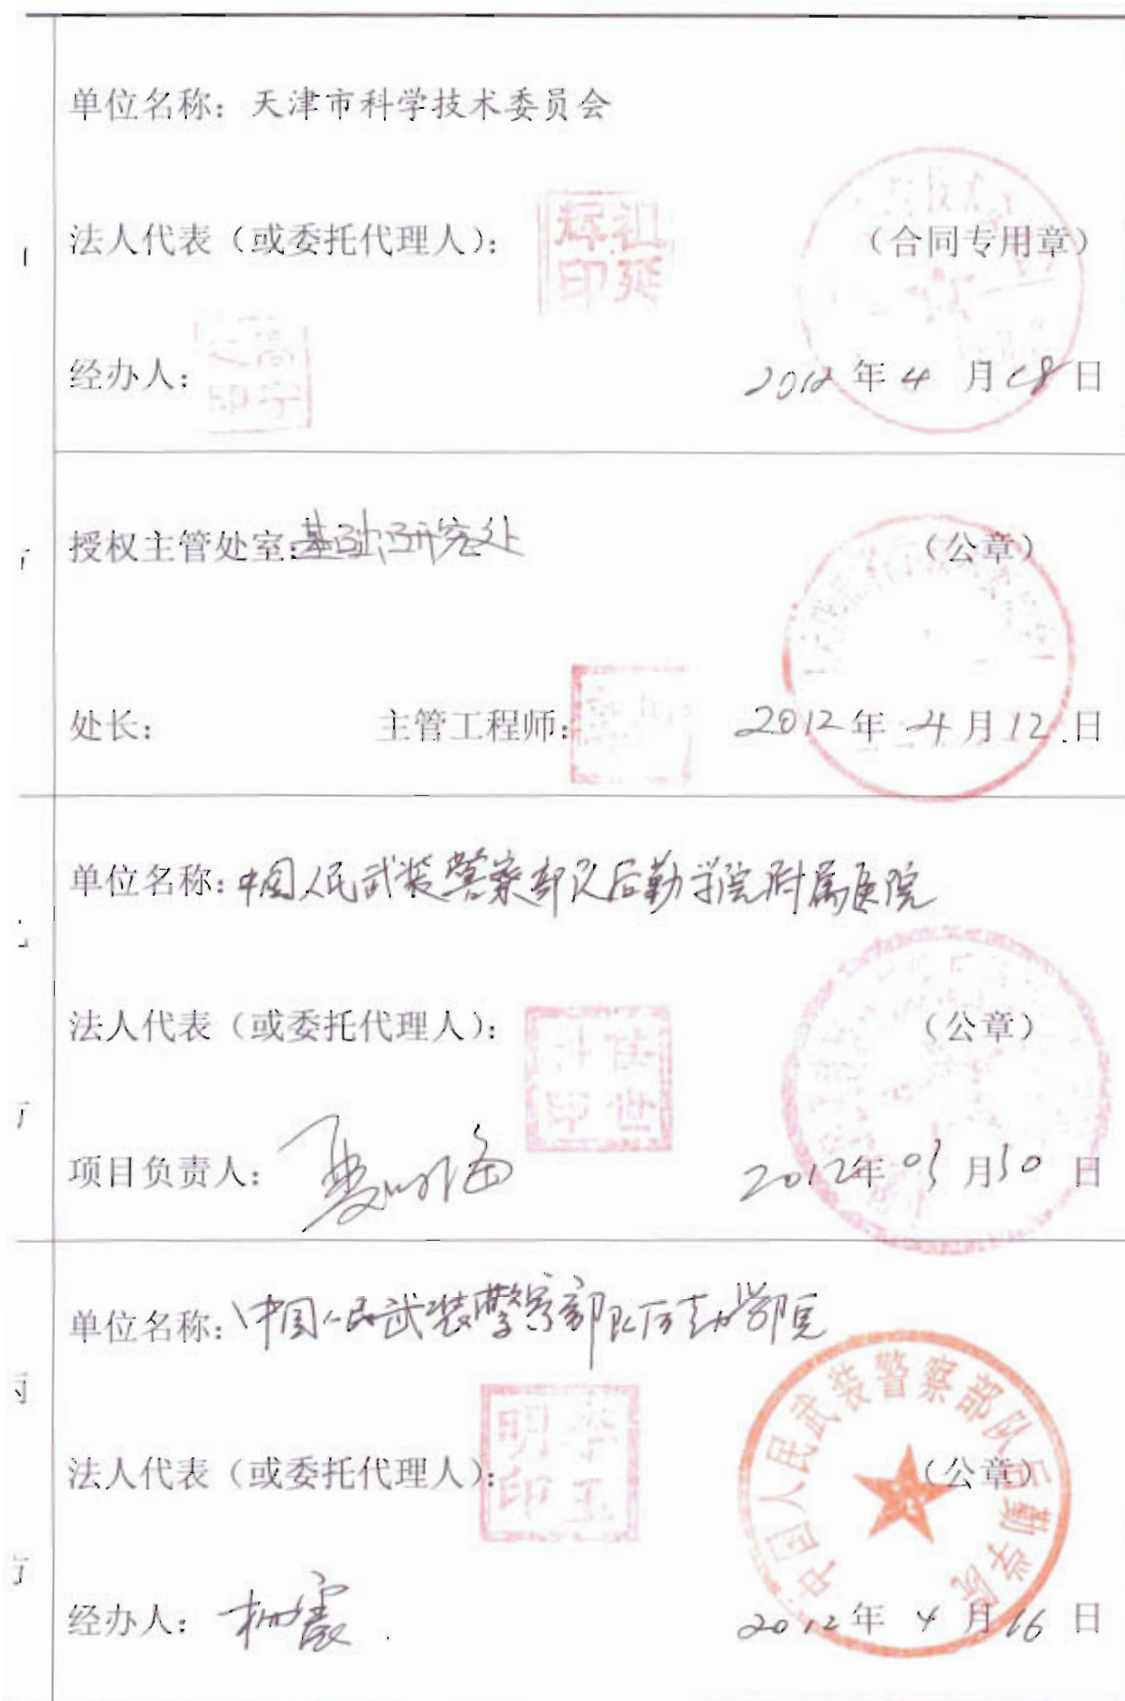 单位名称：天津市科学技术委员会
法人代表（或委托代理人）：
祖延
辉印
（合同专用章）
经办人：
2012年4月18日
授权主管处室：基础研究处
（公章）
处长：
主管工程师：
2012年4月12日
单位名称：中国人民武装警察部队后勤学院附属医院
法人代表（或委托代理人）：
（公章）
项目负责人：
2012年03月30日
单位名称：中国人民武装警察部队后勤学院
法人代表（或委托代理人）：
李玉
明印
（公章）
中国人民武装警察部队后勤学院
经办人：
2012年4月16日